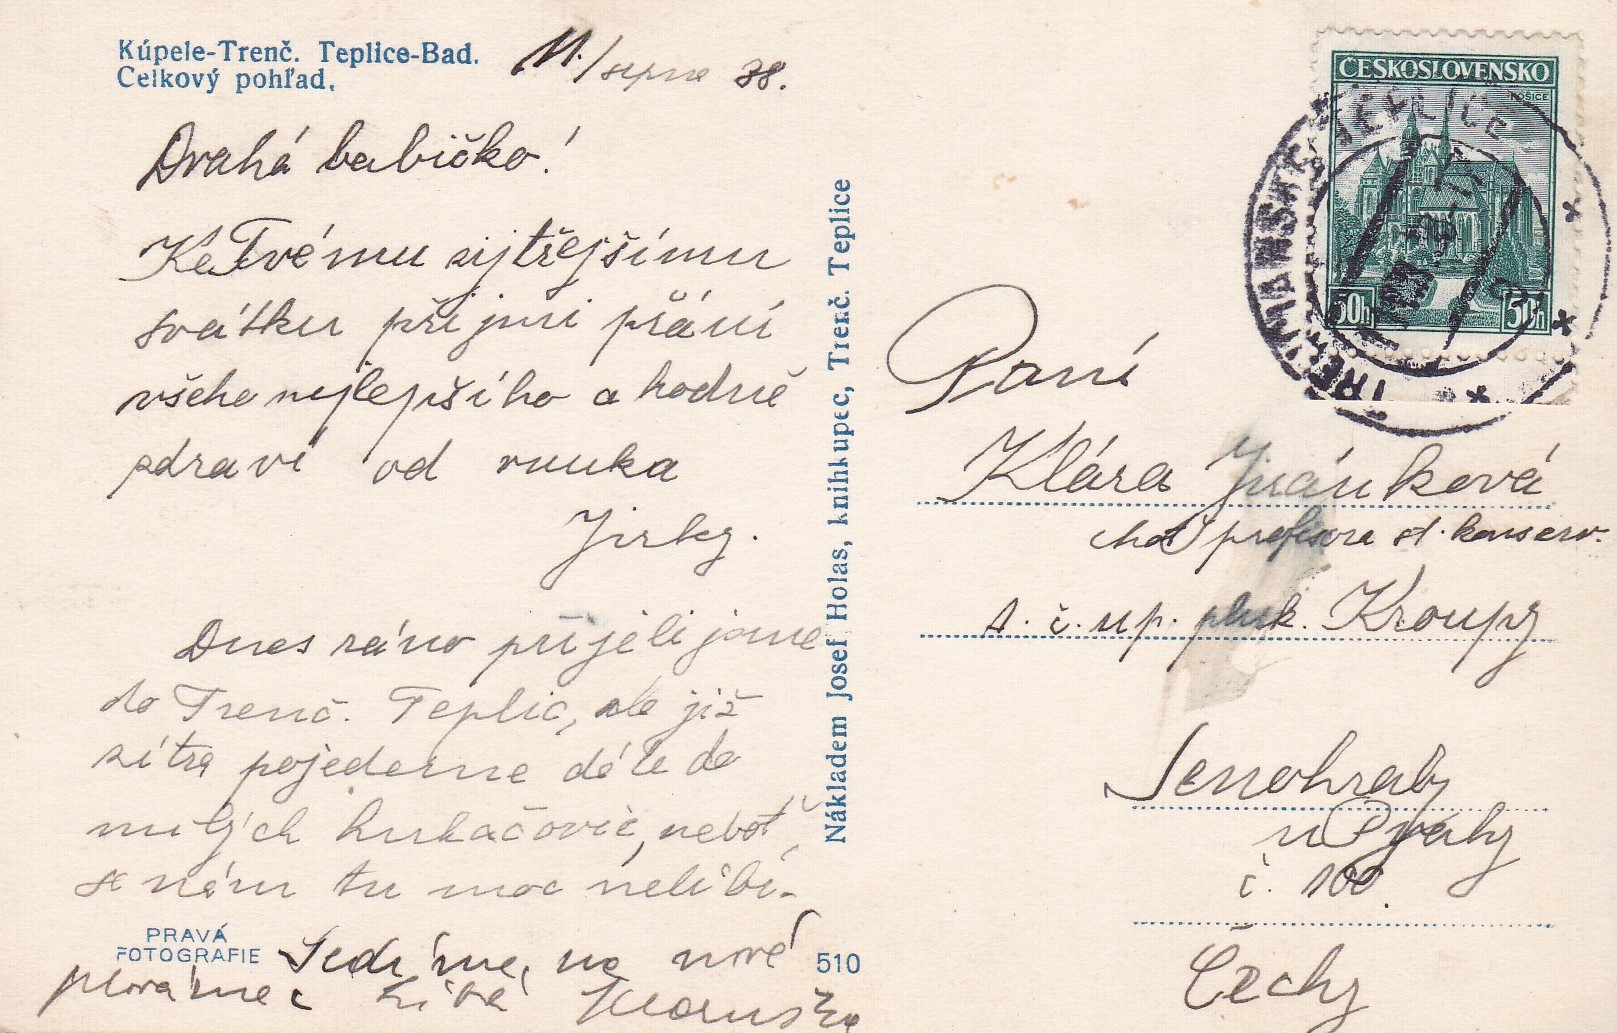 Kúpele-Trenč. Teplice-Bad.
Celkový pohľad.
11./srpna 38.
Drahá babičko!
Ke Tvému zijtřejšímu
svátku přijmi přání
všeho nejlepšího a hodně
zdraví od vnuka
Jirky.
Dnes ráno přijeli jsme
do Trenč. Teplic, ale již
zítra pojedeme dále do
milých Luhačovic, neboť
se nám tu moc nelíbí.
Sedíme na nové
plovárně Líbá
Nákladem Josef Holas, knihkupec, Trenč. Teplice
PRAVÁ
FOTOGRAFIE
510
ČESKOSLOVENSKO
KOŠICE
50h 50h
TRENČIANSKE TEPLICE
Paní
Klára Jránková
choť profesora st. konserv.
t. č. up. pluk. Kroupy
Senohraby
u Prahy
č. 100.
Čechy